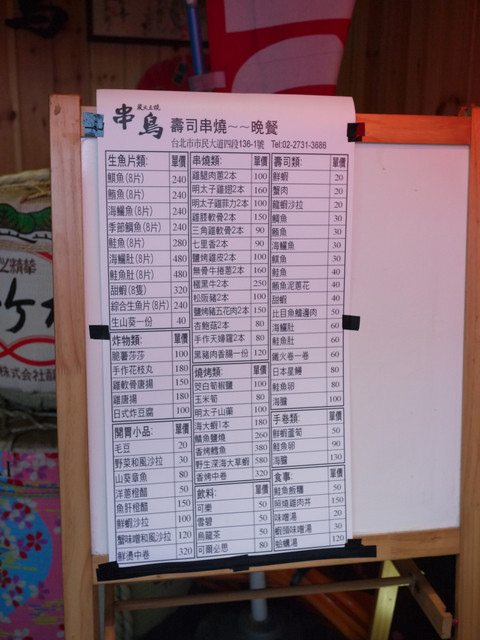 串鳥
炭火土燒
壽司串燒～～晚餐
台北市市民大道四段136-1號 Tel:02-2731-3686
生魚片類: 單價
鮪魚(8片) 240
海鱺魚(8片) 240
季節鯛魚(8片) 240
鮭魚(8片) 280
海鱺肚(8片) 480
鮭魚肚(8片) 480
甜蝦(8隻) 320
綜合生魚片(8片) 240
生山葵一份 40
炸物類: 單價
脆薯莎莎 100
手作花枝丸 180
雞軟骨唐揚 150
雞唐揚 180
日式炸豆腐 100
開胃小品: 單價
毛豆 20
野菜和風沙拉 30
山葵章魚 80
洋蔥橙醋 50
魚肝橙醋 150
鮮蝦沙拉 100
蟹味噌和風沙拉 120
鮮燙中卷 320
串燒類: 單價
雞腿肉蔥2本 100
明太子雞翅2本 160
明太子雞菲力2本 100
雞膝軟骨2本 150
三角雞軟骨2本 90
七里香2本 90
鹽烤雞皮2本 100
無骨牛捲蔥2本 160
極黑牛2本 250
松阪豬2本 100
鹽烤豬五花肉2本 140
杏鮑菇2本 80
手作天婦羅2本 80
黑豬肉香腸一份 120
燒烤類: 單價
茭白筍椒鹽 100
玉米筍 80
明太子山藥 100
海大蝦1本 180
鯖魚鹽燒 260
香烤鱈魚 380
野生深海大草蝦 580
香烤中卷 320
飲料: 單價
可樂 50
雪碧 50
烏龍茶 50
可爾必思 80
壽司類: 單價
鮮蝦 20
蟹肉 20
龍蝦沙拉 20
鯛魚 30
鮪魚 30
海鱺魚 30
鮭魚 40
鮪魚泥蔥花 40
甜蝦 40
比目魚鰭邊肉 50
海鱺肚 60
鮭魚肚 60
鐵火卷一卷 60
日本星鰻 80
鮭魚卵 80
海膽 100
手卷類: 單價
鮮蝦蘆筍 50
鮭魚卵 90
海膽 130
食事: 單價
鮭魚飯糰 50
照燒雞肉丼 150
味噌湯 20
蝦頭味噌湯 30
蛤蠣湯 120